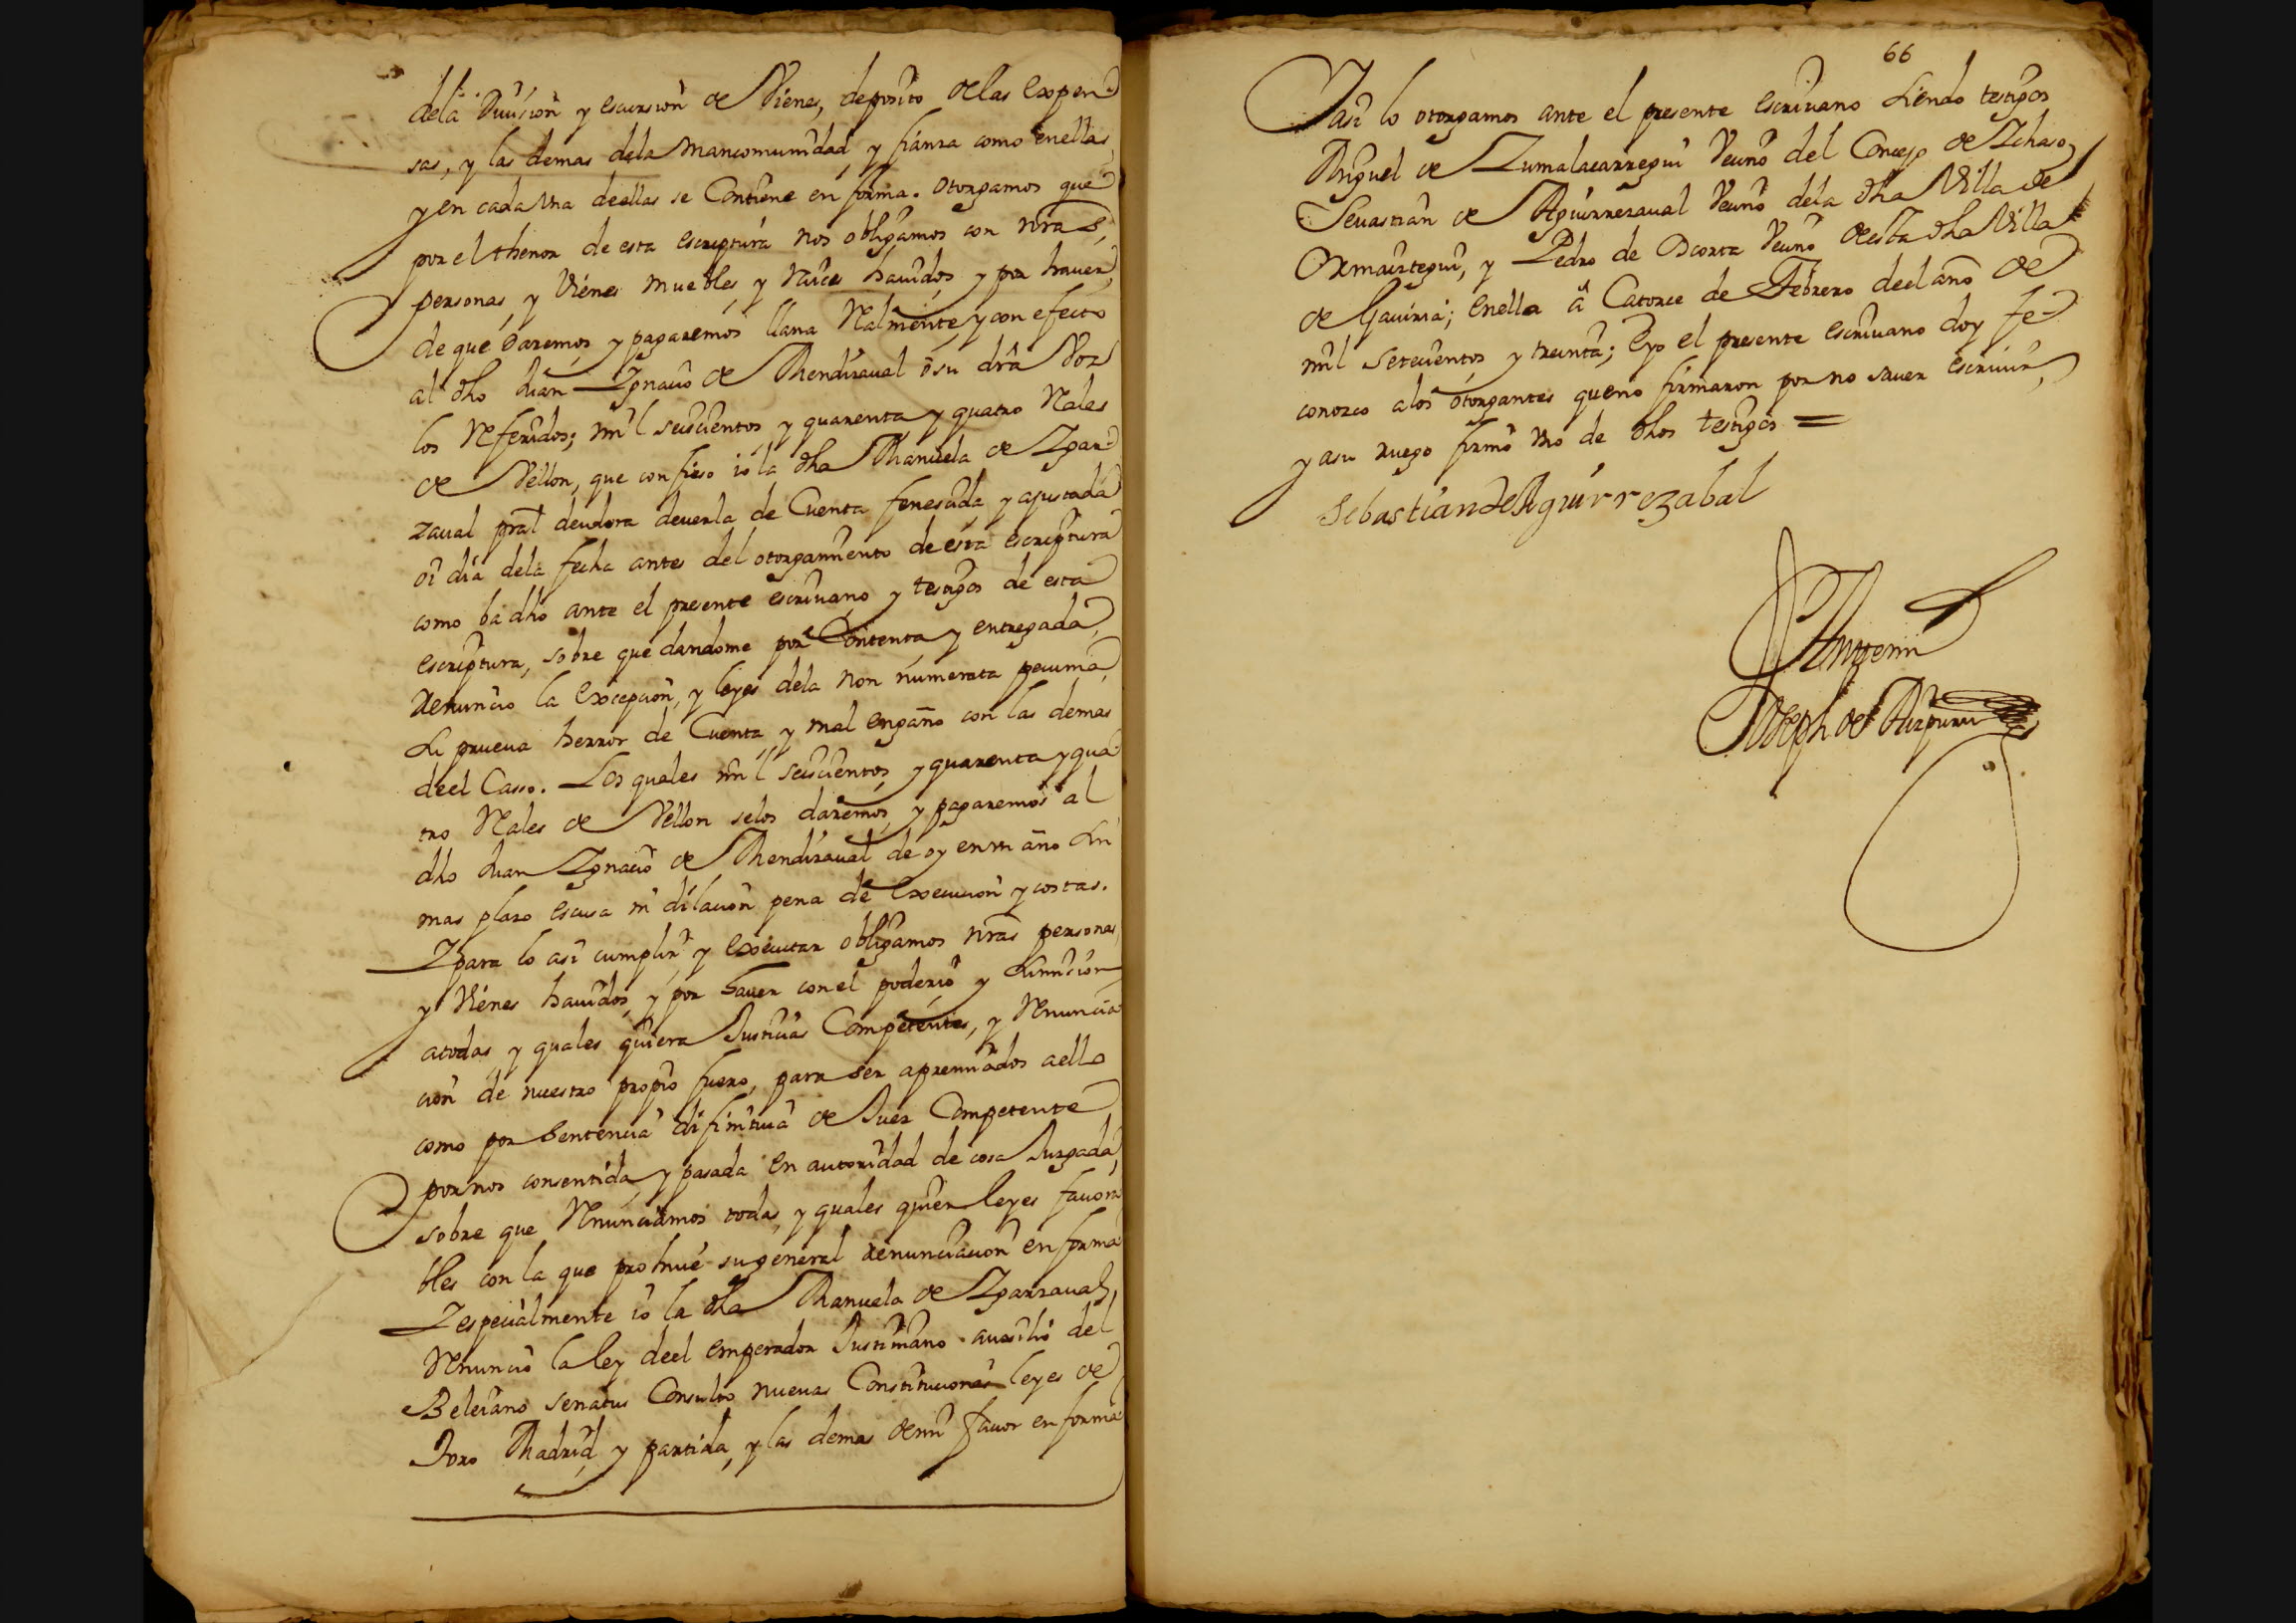 dela Diuision y escursion de Vienes, deposito delas expen-
sas, y las demas dela mancomunidad y fianza como enellas,
y en cada Vna deellas se Contiene en forma. otorgamos que
por el thenor de esta escriptura nos obligamos con nras
personas, y Vienes muebles y Raices hauidos, y por hauer,
de que Daremos, y pagaremos llana Realmente, y con efecto
al dho Juan Ygnacio de Mendizaual o su dra Voz
los Referidos; mil seiscientos y quarenta, y quatro Reales
de Vellon, que confieso io la dha Manuela de Ygar-
zaual pral deudora deuerla de Cuenta fenescida y ajustada
oi dia dela fecha antes del otorgamiento de esta escriptura
como ba dho ante el presente escriuano y testigos de esta
escriptura, sobre que dandome por Contenta, y entregada,
Renuncio la excepcion, y leyes dela non numerata pecunia,
su prueua herror de Cuenta, y mal engaño con las demas
deel Casso. Los quales mil seiscientos, y quarenta y qua-
tro Reales de Vellon selos daremos, y pagaremos al
dho Juan Ygnacio de Mendizaual de oy en vn año sin
mas plazo escusa ni dilacion pena de execucion y costas.
Y para lo asi cumplir y executar obligamos nras personas,
y Vienes hauidos, y por hauer con el poderio y sumision
atodas y quales quiera Justicias Competentes, y Renuncia-
cion de nuestro propio fuero, para ser apremiados aello
como por sentencia difinitiua de Juez Competente
por nos consentida, y pasada en autoridad de cosa Juzgada,
sobre que Renunciamos todas, y quales quier leyes fauora-
bles con la que prohiue su general renunciacion en forma
Y especialmente io la dha Manuela de Ygarzaual,
Renuncio la ley deel emperador Justiniano auxilio del
Beleiano senatus Consulto nueuas Constituciones leyes de
Toro Madrid, y partida, y las demas de mi fauor en forma
66
Y asi lo otorgamos ante el presente escriuano siendo testigos
Miguel de Zumalacarregui Vecino del Concejo de Ychaso,
Seuastian de Aguirrezaual Vecino dela dha Villa de
Ormaiztegui, y Pedro de Ycorta Vecino de esta dha Villa
de Gauiria; enella a Catorce de Febrero deel año de
mil setecientos, y treinta; E yo el presente escriuano doy fe
conozco alos otorgantes que no firmaron por no sauer escriuir,
y asu ruego firmo Vno de dhos testigos =
Sebastian de Aguirrezabal
Antemi
Joseph de Aizpuru